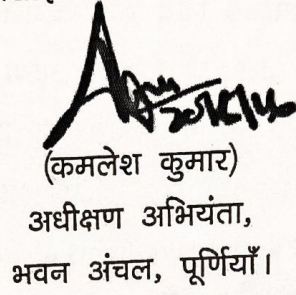 (कमलेश कुमार)
अधीक्षण अभियंता,
भवन अंचल, पूर्णियाँ।